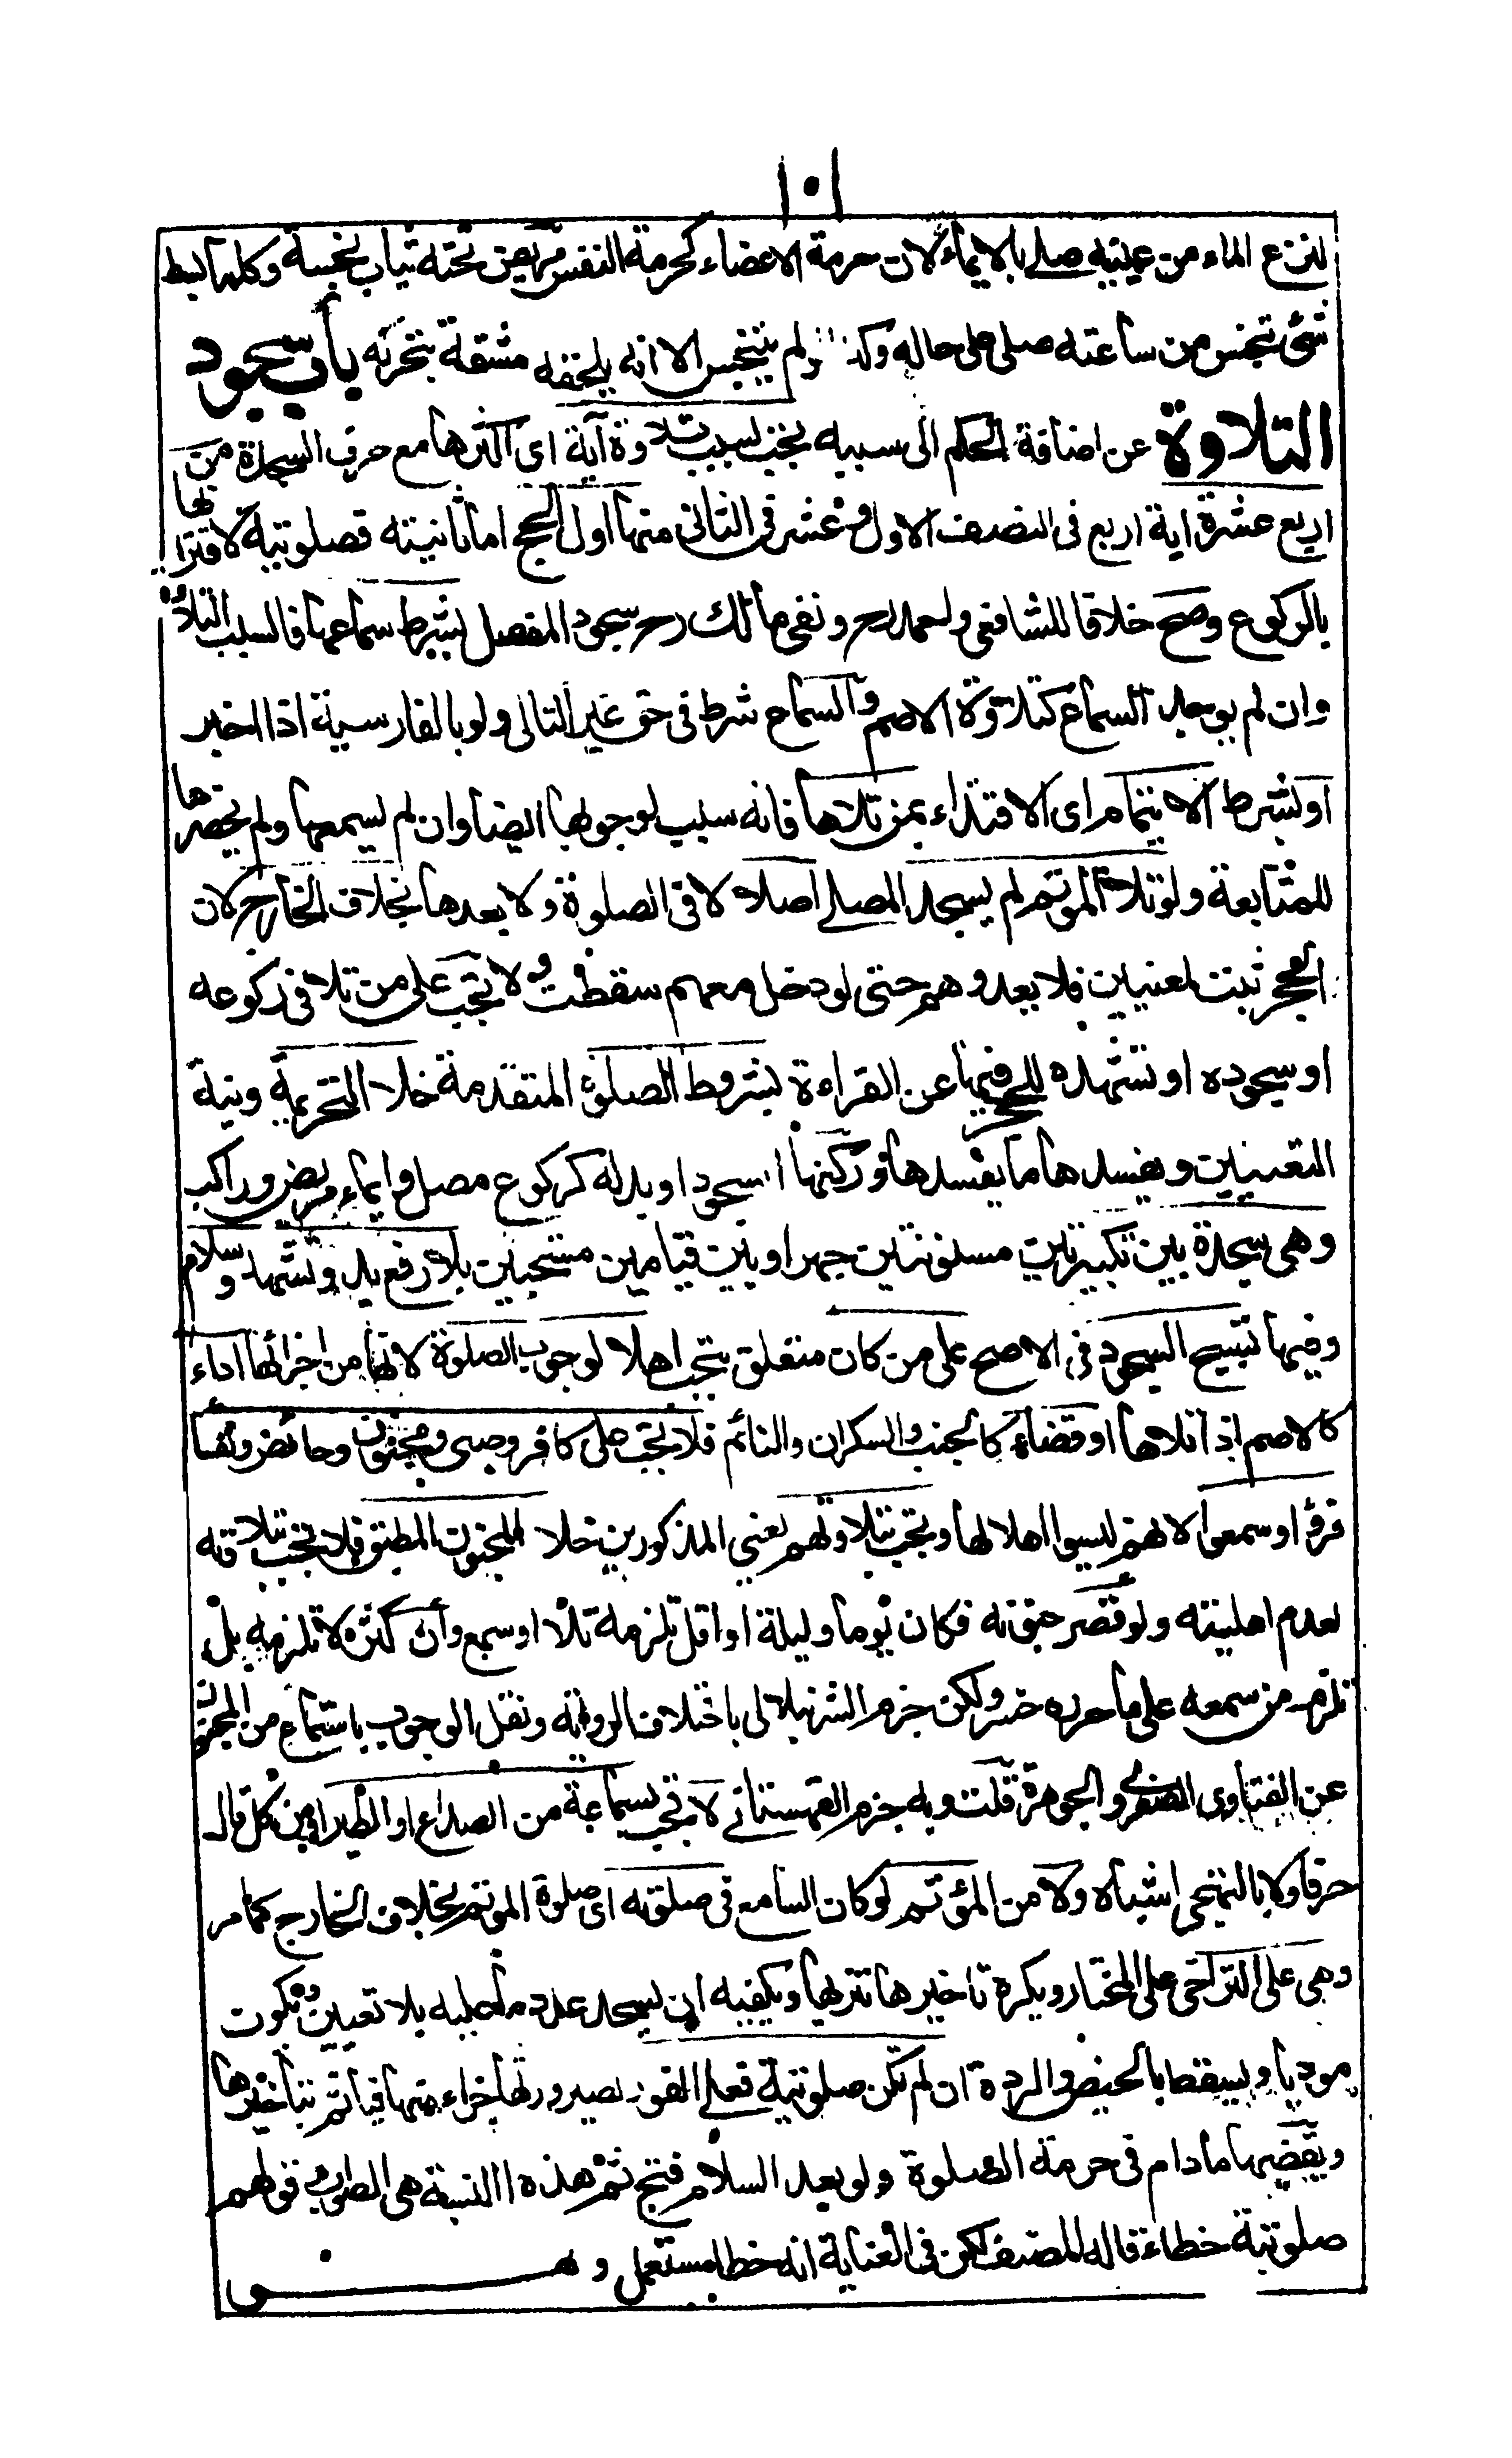 ١٠١
لنزع الماء من عينيه صلى بالايماء لان حرمة الاعضاء كحرمة النفس مريض تحته ثياب نجسة وكلما بسط
شئ تنجس من ساعته صلى على حاله وكذ ولم يتنجس الا انه يلحقه مشقة بتحركه باب سجود
التلاوة عن اضافة الحكم الى سببه يجب بسبب تلاوة آية اى اكثرها مع حرف السجدة من
اربع عشرة اية اربع فى النصف الاول وعشر فى الثانى منها اول الحج اما ثانيته فصلوتية لاقترانها
بالركوع وصح خلافا للشافعى ولحمد رح ونفى مالك رح سجود المفصل بشرط سماعها فالسبب التلاوة
وان لم يوجد السماع كتلاوة الاصم والسماع شرط فى حق غير التالى ولو بالفارسية اذا اخبر
او بشرط الائتمام اى الاقتداء بمن تلاها فانه سبب لوجوبها ايضا وان لم يسمعها ولم يحضرها
للمتابعة ولو تلا المؤتم لم يسجد المصلى اصلا لا فى الصلوة ولا بعدها بخلاف الخارج لان
الحجر ثبت لمعنيين فلا يعدوهم حتى لو دخل معهم سقطت ولا تجب على من تلا فى ركوعه
او سجوده او تشهده للحجر فيها عن القراءة بشروط الصلوة المتقدمة خلا التحريمة ونية
التعيين ويفسدها ما يفسدها وركنها السجود او بدله كركوع مصل وايماء مريض وراكب
وهى سجدة بين تكبيرتين مسنونتين جهرا وبين قيامين مستحبين بلا رفع يد وتشهد وسلام
وفيها تسبيح السجود فى الاصح على من كان متعلق بتجب اهلا لوجوب الصلوة لانها من اجزائها اداء
كالاصم اذا تلاها او قضاء كالجنب والسكران والنائم فلا تجب على كافر وصبى ومجنون وحائض ونفسا
قرؤ او سمعوا لانهم ليسوا اهلا لها وتجب بتلاوتهم يعنى المذكورين خلا المجنون المطبق فلا تجب بتلاوته
لعدم اهليته ولو قصر جنونه فكان يوما وليلة او اقل تلزمه تلا او سمع وان كثر لا تلزمه بل
تلزم من سمعه على ما حرره خسرو لكن جزم الشرنبلالى باختلاف الرواية ونقل الوجوب باستماع من المجنون
عن الفتاوى الصغرى والجوهرة قلت وبه جزم القهستانى لا تجب بسماعه من الصداء او الطير او من كل قال
حرفا ولا بالتهجى اشباه ولا من المؤتم لو كان السامع فى صلوته اى صلوة المؤتم بخلاف الخارج كما مر
وهى على التراخى على المختار ويكره تاخيرها تنزيها ويكفيه ان يسجد عدد ما عليه بلا تعيين ويكون
موديا ويسقط بالحيض والردة ان لم تكن صلوتية فعلى الفور لصيرورتها جزاء منها فياثم بتأخيرها
ويقضيها ما دام فى حرمة الصلوة ولو بعد السلام فتح ثم هذه النسبة هى الصواب فقولهم
صلوتية خطاء قاله المصنف لكن فى العناية انه خطا مستعمل وهى